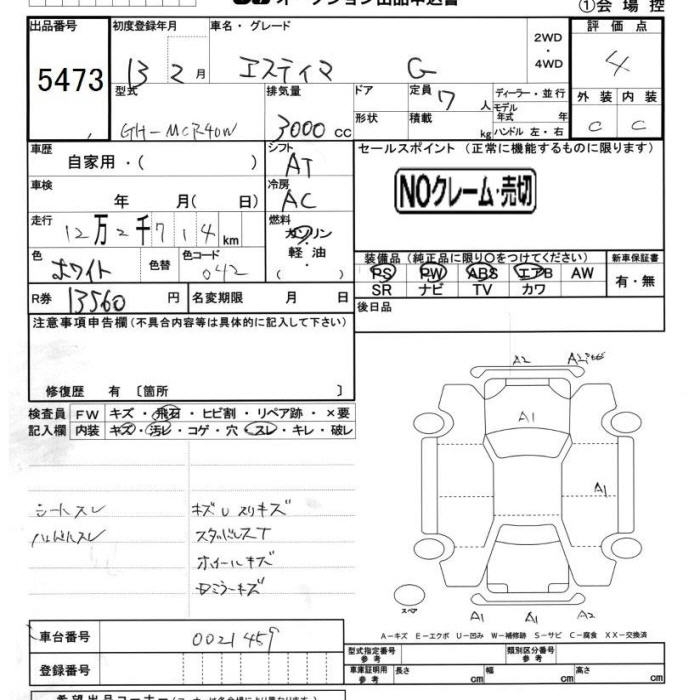 オークション出品申込書
①会場控
出品番号
5473
初度登録年月
13 2月
車名・グレード
エスティマ G
2WD・4WD
評価点
4
型式
GH-MCR40W
排気量
3000 cc
ドア
形状
定員
7 人
積載
kg
ディーラー・並行
モデル年式 年
ハンドル 左・右
外装 内装
C C
車歴
自家用・( )
シフト
AT
セールスポイント (正常に機能するものに限ります)
NOクレーム・売切
車検
年 月( 日)
冷房
AC
走行
12万2千714km
燃料
ガソリン
軽油
( )
色
ホワイト
色替
色コード
042
装備品 (純正品に限り○をつけてください) 新車保証書
PS PW ABS エアB AW
SR ナビ TV カワ
有・無
R券 13560 円
名変期限 月 日
後日品
注意事項申告欄(不具合内容等は具体的に記入して下さい)
修復歴 有 〔箇所 〕
検査員 FW キズ・飛石・ヒビ割・リペア跡・×要
記入欄 内装 キズ・汚レ・コゲ・穴・スレ・キレ・破レ
シートスレ
ハンドルスレ
キズUスリキズ
スタッドレスT
ホイールキズ
Dミラーキズ
A2
A1
A1
スペア
A1 A1 A2
A−キズ E−エクボ U−凹み W−補修跡 S−サビ C−腐食 XX−交換済
車台番号
0021459
登録番号
型式指定番号 参考
類別区分番号 参考
車庫証明用 参考
長さ cm 幅 cm 高さ cm
希望出品コーナー